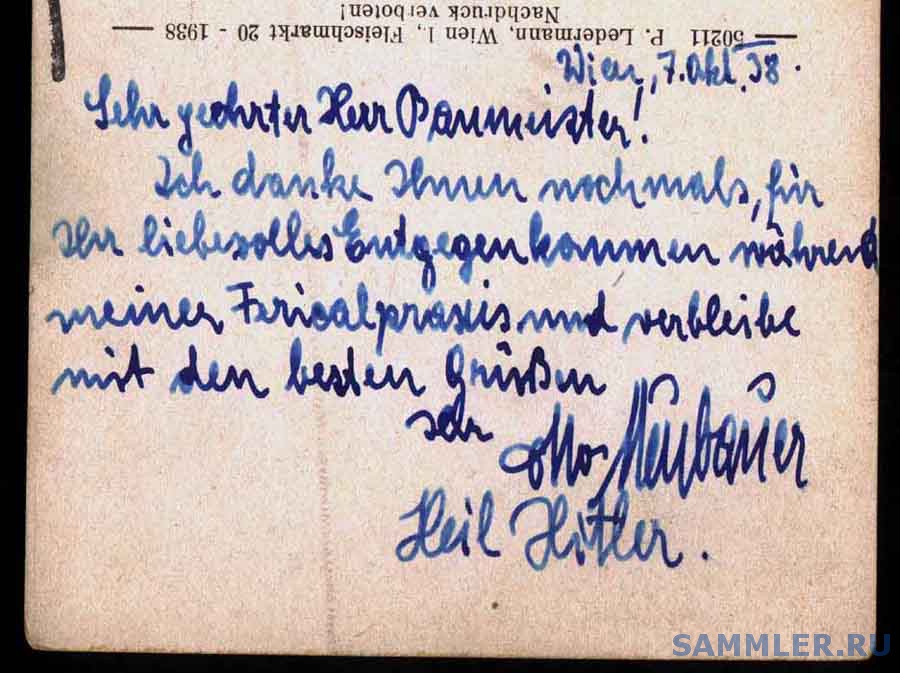 Nachdruck verboten!
50211 P. Ledermann, Wien I., Fleischmarkt 20 - 1938
Wien, 7. Okt. 38.
Sehr geehrter Herr Baumeister!
Ich danke Ihnen nochmals, für
Ihr liebevolles Entgegenkommen während
meiner Ferialpraxis und verbleibe
mit den besten Grüßen
Ihr Otto Neubauer
Heil Hitler.
SAMMLER.RU